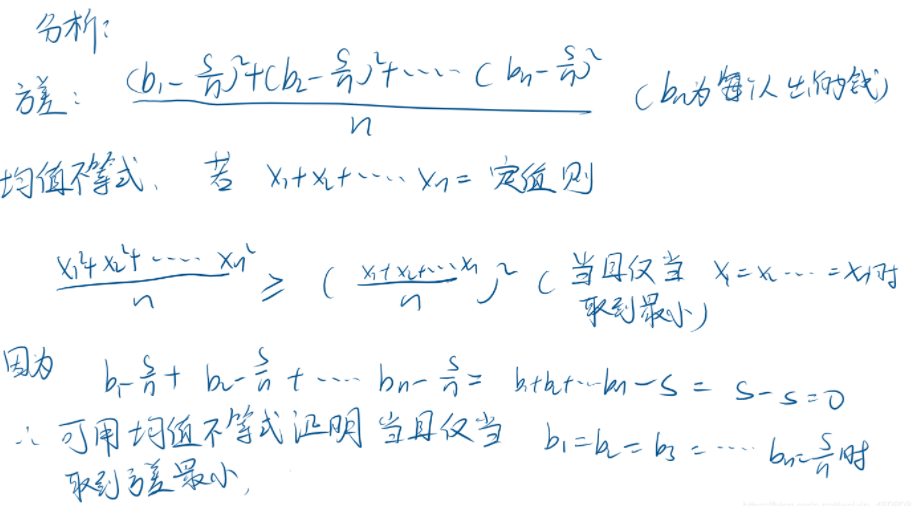 分析:
方差: \frac{(b_1-\frac{s}{n})^2+(b_2-\frac{s}{n})^2+\cdots\cdots(b_n-\frac{s}{n})^2}{n} (b_n为每人出的钱)
均值不等式、若 x_1+x_2+\cdots\cdots x_n= 定值则
\frac{x_1^2+x_2^2+\cdots\cdots x_n^2}{n} ≥ (\frac{x_1+x_2+\cdots x_n}{n})^2 (当且仅当 x_1=x_2\cdots\cdots=x_n时
取到最小)
因为 b_1-\frac{s}{n}+b_2-\frac{s}{n}+\cdots\cdots b_n-\frac{s}{n}=b_1+b_2+\cdots b_n-s=s-s=0
∴可用均值不等式证明当且仅当 b_1=b_2=b_3=\cdots\cdots b_n=\frac{s}{n}时
取到方差最小,